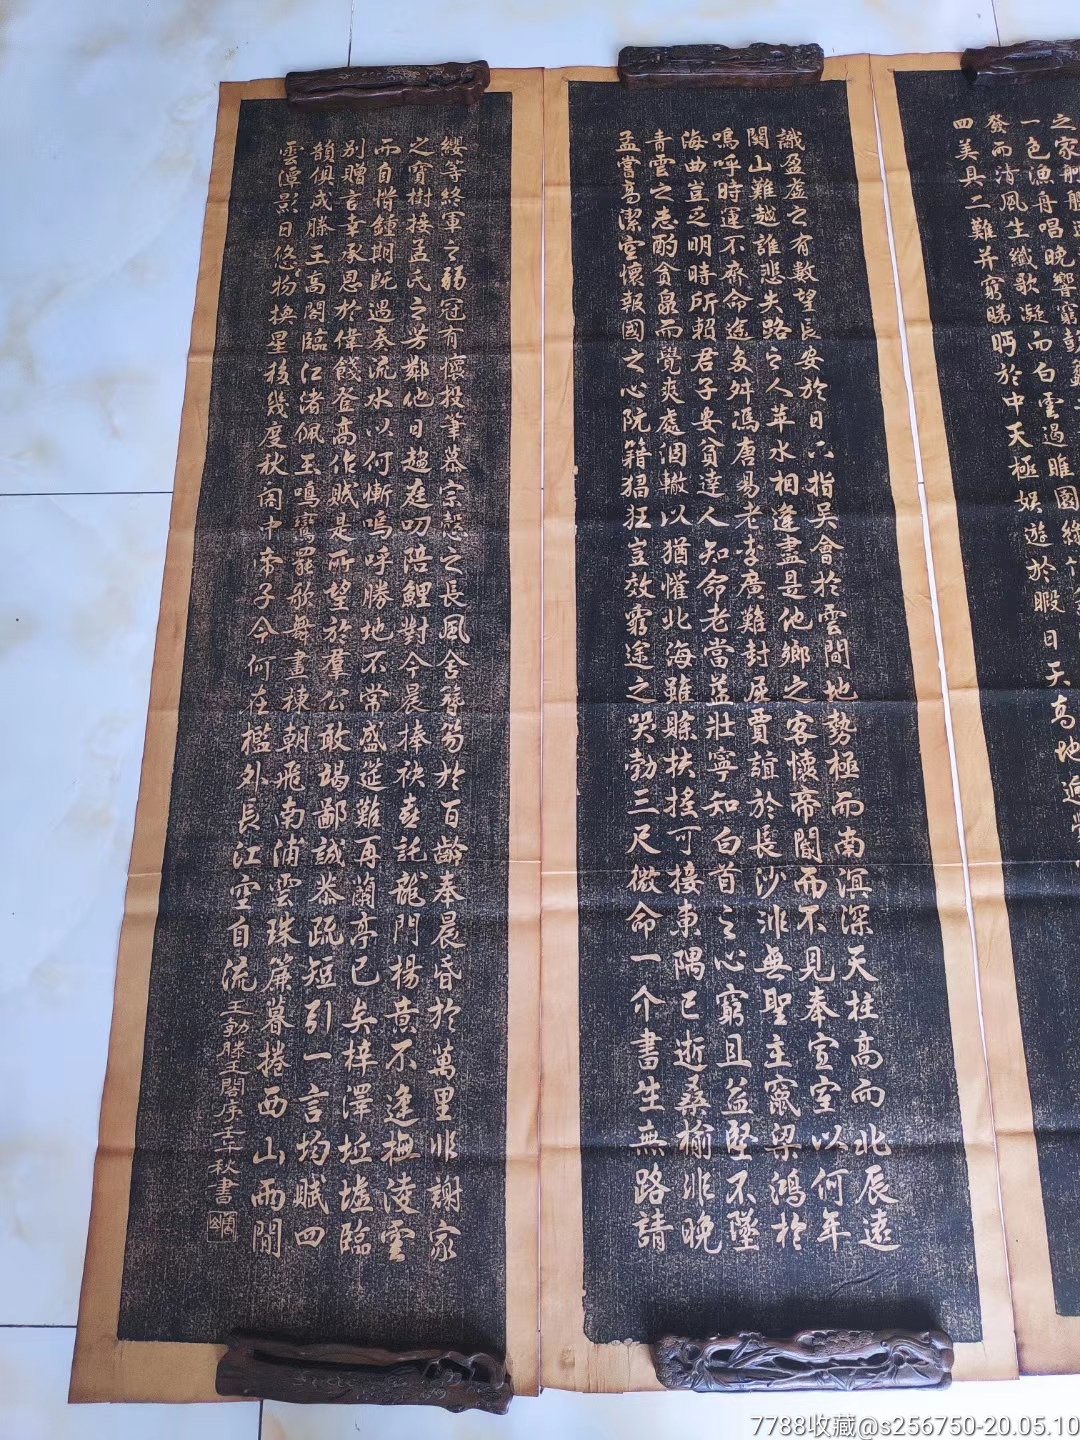 一色漁舟唱晚響窮彭蠡
發而清風生纖歌凝而白雲遏睢園綠竹
四美具二難并窮睇眄於中天極娛遊於暇日天高地迥
識盈虛之有數望長安於日下指吳會於雲間地勢極而南溟深天柱高而北辰遠
關山難越誰悲失路之人萍水相逢盡是他鄉之客懷帝閽而不見奉宣室以何年
嗚呼時運不齊命途多舛馮唐易老李廣難封屈賈誼於長沙非無聖主竄梁鴻於
海曲豈乏明時所賴君子安貧達人知命老當益壯寧知白首之心窮且益堅不墜
青雲之志酌貪泉而覺爽處涸轍以猶懽北海雖賒扶搖可接東隅已逝桑榆非晚
孟嘗高潔空懷報國之心阮籍猖狂豈效窮途之哭勃三尺微命一介書生無路請
纓等終軍之弱冠有懷投筆慕宗愨之長風舍簪笏於百齡奉晨昏於萬里非謝家
之寶樹接孟氏之芳鄰他日趨庭叨陪鯉對今晨捧袂喜託龍門楊意不逢撫淩雲
而自惜鍾期既遇奏流水以何慚嗚呼勝地不常盛筵難再蘭亭已矣梓澤坵墟臨
別贈言幸承恩於偉餞登高作賦是所望於羣公敢竭鄙誠恭疏短引一言均賦四
韻俱成滕王高閣臨江渚佩玉鳴鸞罷歌舞畫棟朝飛南浦雲珠簾暮捲西山雨閒
雲潭影日悠悠物換星移幾度秋閣中帝子今何在檻外長江空自流 王勃滕王閣序 秋書
7788收藏@s256750-20.05.10